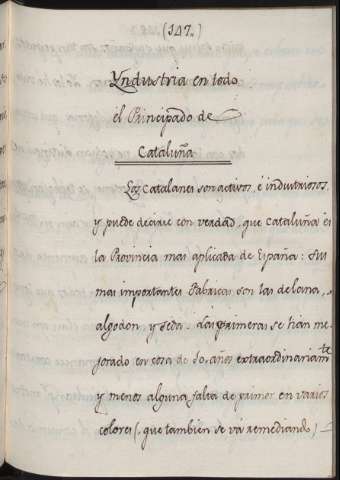 (147.)
Yndustria en todo
el Principado de
Cataluña
Los Catalanes son activos, é industriosos,
y puede decirse con verdad, que Cataluña es
la Provincia mas aplicada de España: sus
mas importantes Fabricas son las de lana,
algodon y seda. Las primeras se han me-
jorado en cosa de 50. años extraordinariamte
y menos alguna falta de primor en varios
colores (que tambien se vá remediando)